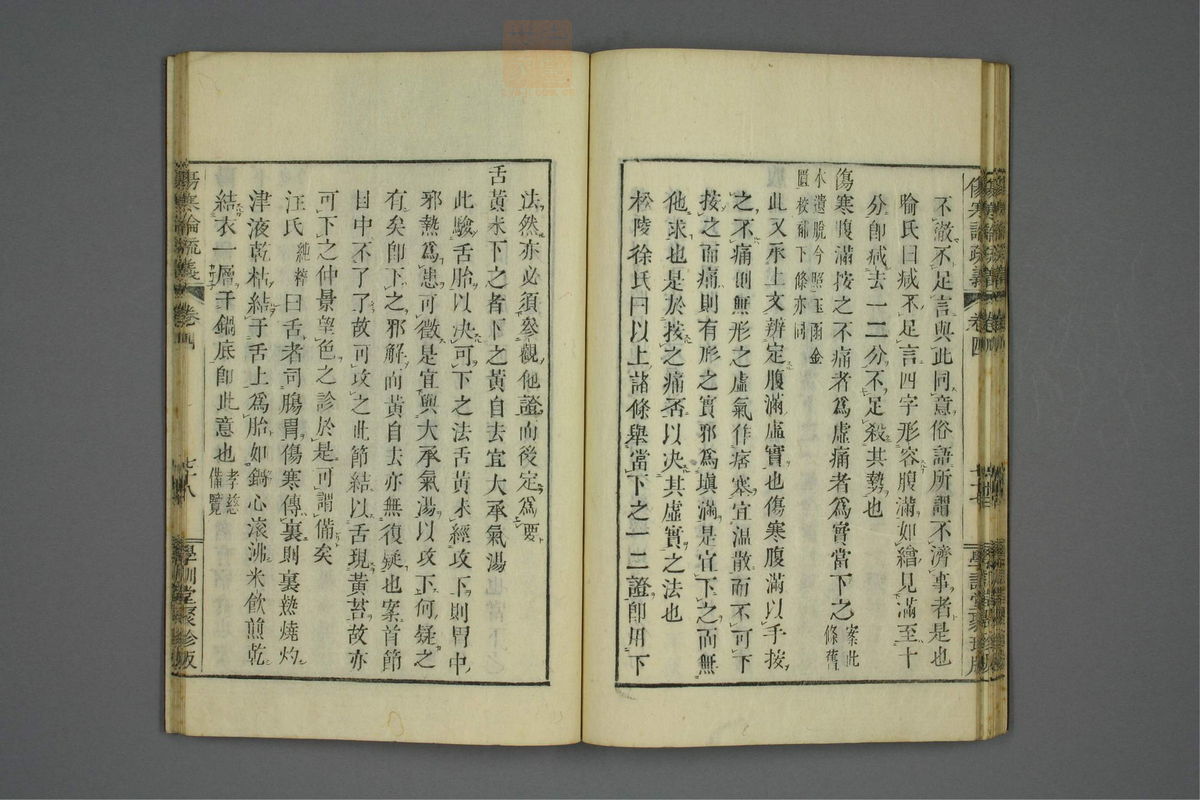 不澂不足言與此同意俗語所謂不濟事者是也
喻氏曰減不足言四字形容腹滿如繪見滿至十
分卽減去一二分不足殺其勢也
傷寒腹滿按之不痛者爲虛痛者爲實當下之案此條舊
本遺脫今照玉函金
匱校補下條亦同
此又承上文辨定腹滿虛實也傷寒腹滿以手按
之不痛則無形之虛氣作痞塞宜溫散而不可下
按之而痛則有形之實邪爲塡滿是宜下之而無
他求也是於按之痛否以決其虛實之法也
松陵徐氏曰以上諸條舉當下之一二證卽用下
傷寒論疏義 卷四 學訓堂聚珍版
法然亦必須參觀他證而後定爲要
舌黃未下之者下之黃自去宜大承氣湯
此驗舌胎以決可下之法舌黃未經攻下則胃中
邪熱爲患可徵是宜與大承氣湯以攻下何疑之
有矣卽下之邪解而黃自去亦無復疑也案首節
目中不了了故可攻之此節結以舌現黃苔故亦
可下之仲景望色之診於是可謂備矣
汪氏純粹曰舌者司腸胃傷寒傳裏則裏熱燒灼
津液乾枯結于舌上爲胎如鍋心滾沸米飮煎乾
結衣一層于鍋底卽此意也孝慈備覽
傷寒論疏義 卷四 七十八 學訓堂聚珍版